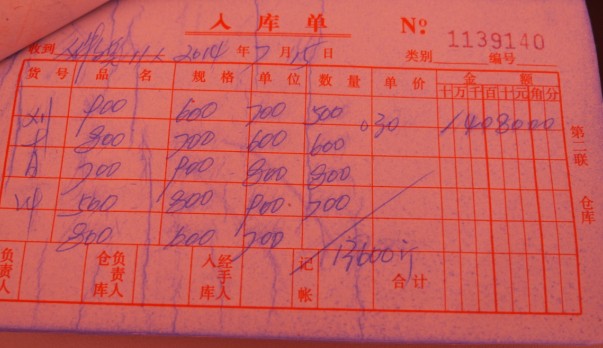 入库单 № 1139140
收到 2014年7月15日 类别 编号
货号 品名 规格 单位 数量 单价 金额
十万千百十元角分
900 600 700 500 030 1408000
800 700 600 600
700 900 800 800
560 800 900 700
800 600 700
13600
负责人 仓库负责人 入库经手人 记帐 合计
第二联 仓库